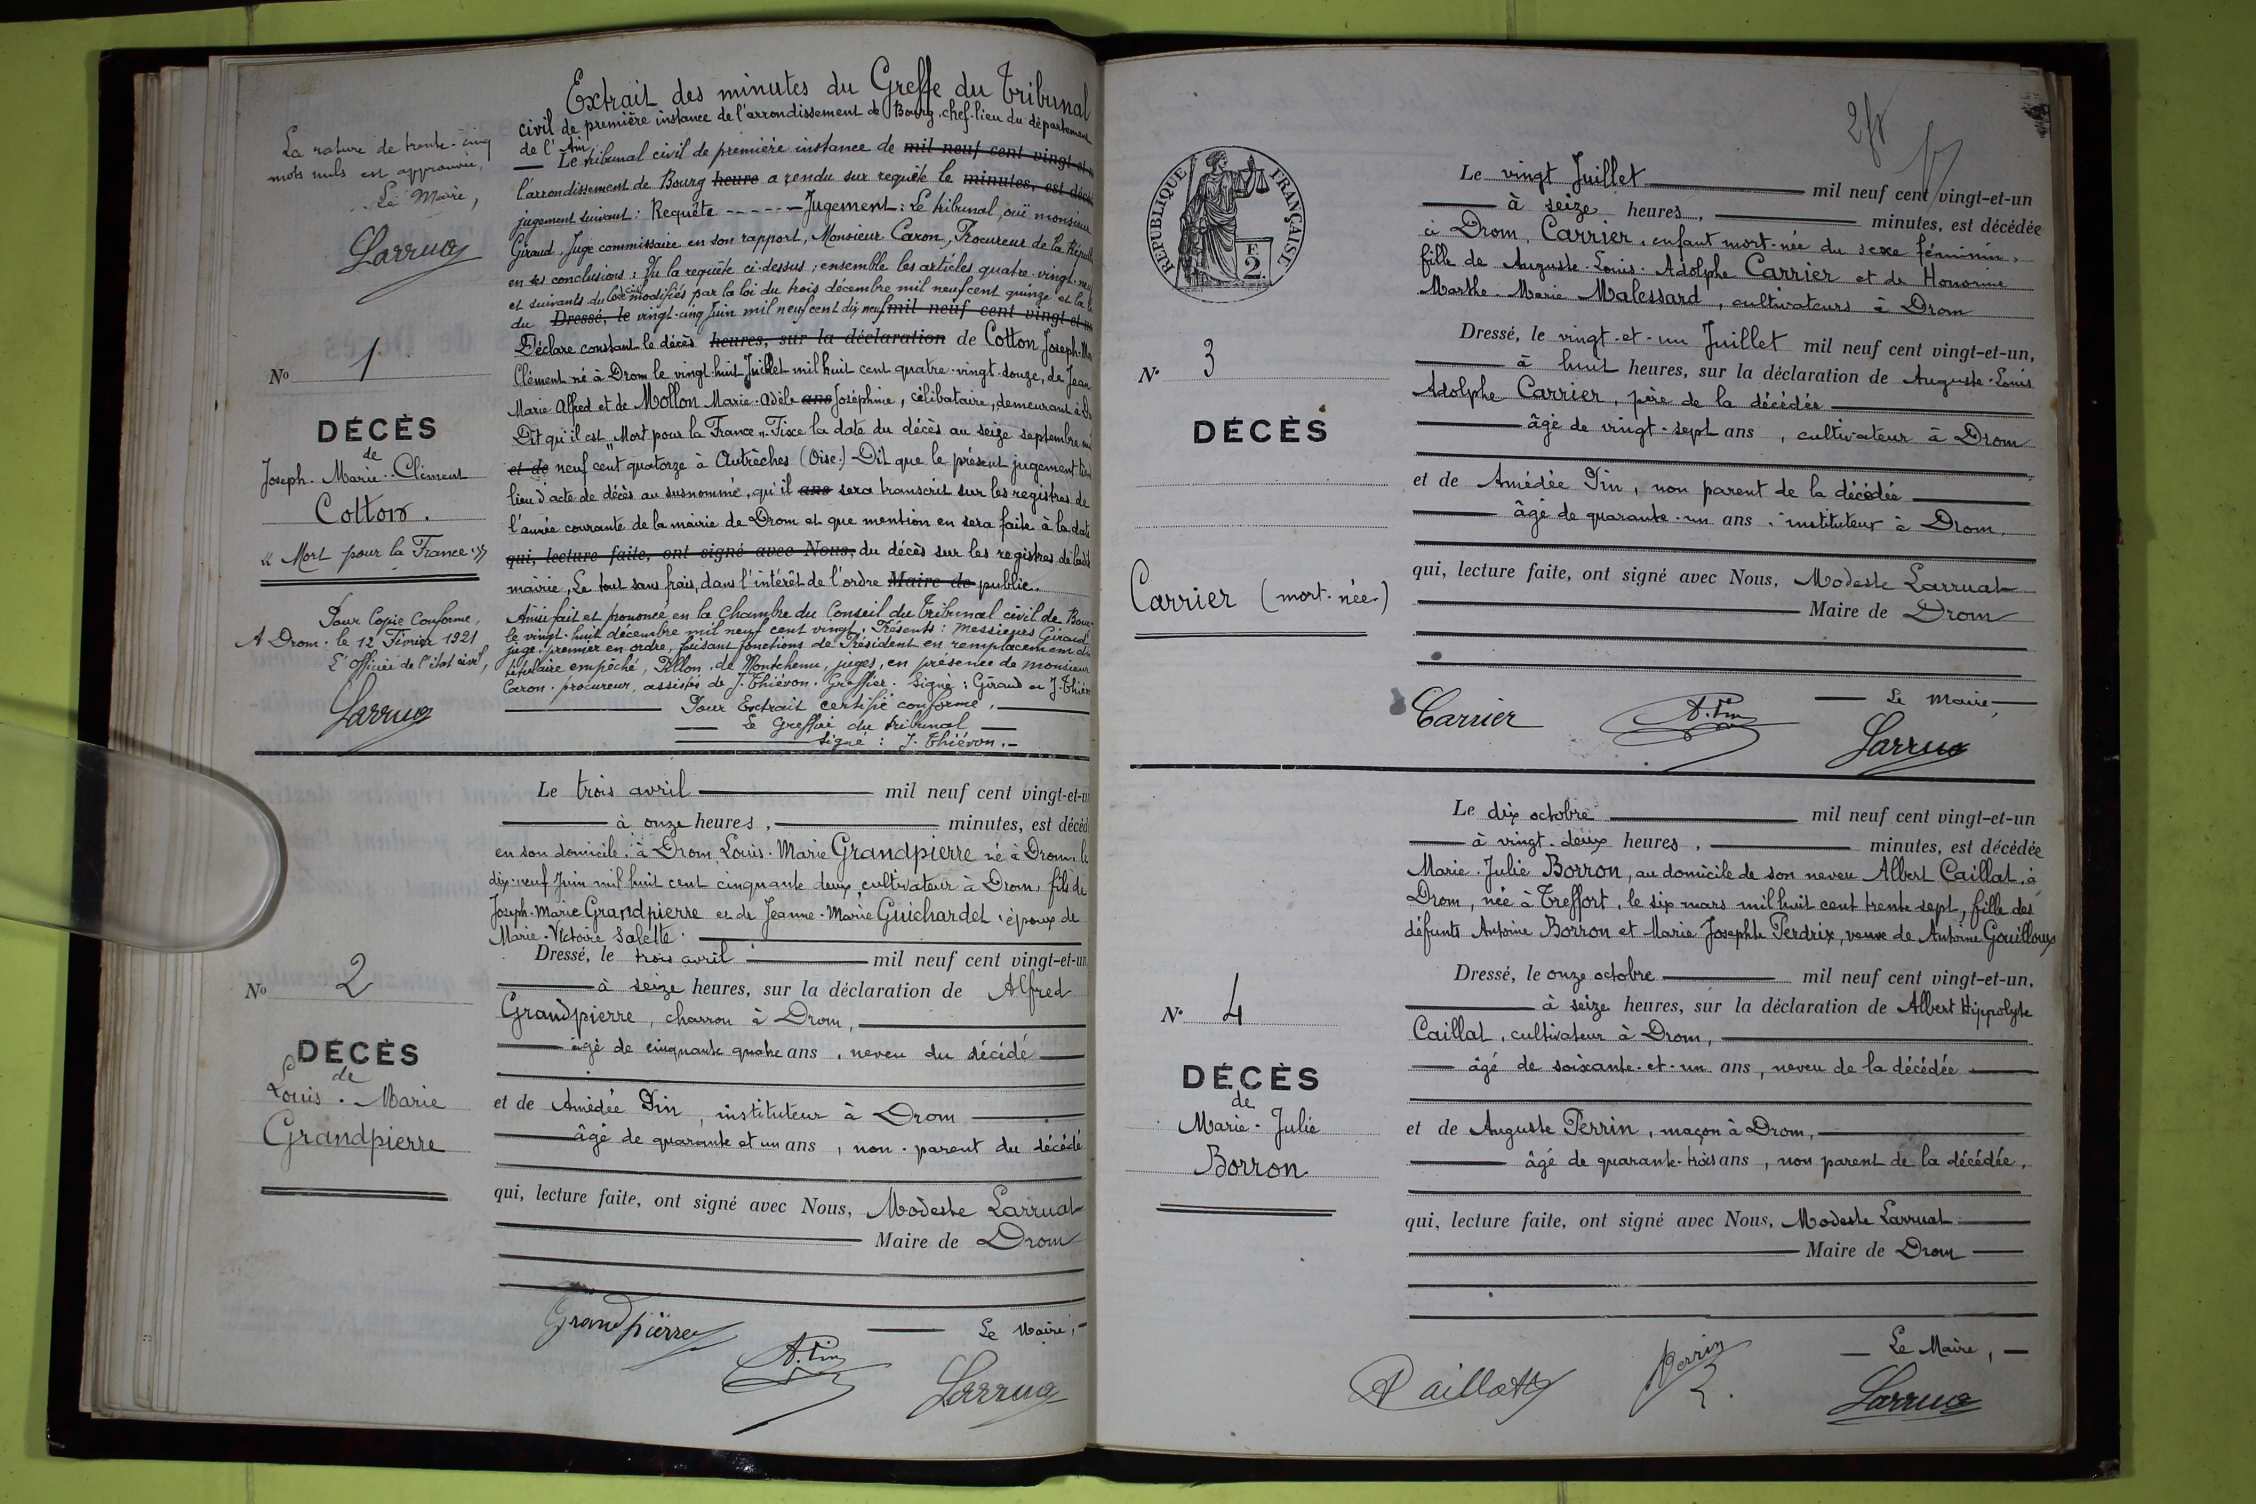 La rature de trente-cinq
mots nuls est approuvée,
Le Maire,
Larruat
N° 1
DÉCÈS
de
Joseph-Marie-Clément
Cotton.
« Mort pour la France »
Pour Copie Conforme,
A Drom, le 12 Février 1921
L'Officier de l'état civil,
Larruat
Extrait des minutes du Greffe du Tribunal
civil de première instance de l'arrondissement de Bourg, chef-lieu du département
de l'Ain
Le tribunal civil de première instance de mil neuf cent vingt-et-u
l'arrondissement de Bourg heure a rendu sur requête le minutes, est décé
jugement suivant: Requête ----- Jugement: Le tribunal, ouï monsieur
Giraud, Juge commissaire en son rapport, Monsieur Caron, Procureur de la Répub
en ses conclusions: Vu la requête ci-dessus; ensemble les articles quatre-vingt-ne
et suivants du Code civil modifiés par la loi du trois décembre mil neuf cent quinze et la l
du Dressé, le vingt-cinq Juin mil neuf cent dix neuf mil neuf cent vingt-et-u
Déclare constant le décès heures, sur la déclaration de Cotton Joseph-Ma
Clément né à Drom le vingt-huit Juillet mil huit cent quatre-vingt-douze, de Jean
Marie Alfred et de Mollon Marie-Adèle ans Joséphine, célibataire, demeurant à D
Dit qu'il est "Mort pour la France". Fixe la date du décès au seize septembre mil
et de neuf cent quatorze à Autrèches (Oise.) Dit que le présent jugement tien
lieu d'acte de décès au susnommé, qu'il ans sera transcrit sur les registres de
l'année courante de la mairie de Drom et que mention en sera faite à la date
qui, lecture faite, ont signé avec Nous, du décès sur les registres de ladit
mairie, Le tout sans frais, dans l'intérêt de l'ordre Maire de public.
Ainsi fait et prononcé en la Chambre du Conseil du Tribunal civil de Bour
le vingt-huit décembre mil neuf cent vingt. Présents: Messieurs Giraud,
juge, premier en ordre, faisant fonctions de Président en remplacement du
titulaire empêché, Pillon, de Montchenu, juges, en présence de monsieur
Caron, procureur, assistés de J. Thiévon, Greffier. Signé: Giraud et J. Thiév
Pour Extrait certifié conforme,
Le Greffier du tribunal
Signé: J. Thiévon.
N° 2
DÉCÈS
de
Louis-Marie
Grandpierre
Le trois avril mil neuf cent vingt-et-u
à onze heures, minutes, est décéd
en son domicile, à Drom, Louis-Marie Grandpierre né à Drom, le
dix-neuf Juin mil huit cent cinquante deux, cultivateur à Drom, fils de
Joseph-Marie Grandpierre et de Jeanne-Marie Guichardet, époux de
Marie-Victoire Salette.
Dressé, le trois avril mil neuf cent vingt-et-un
à seize heures, sur la déclaration de Alfred
Grandpierre, charron à Drom,
âgé de cinquante quatre ans, neveu du décédé
et de Amédée Pin, instituteur à Drom
âgé de quarante et un ans, non-parent du décédé
qui, lecture faite, ont signé avec Nous, Modeste Larruat
Maire de Drom
Le Maire,
Grandpierre
A. Pin
Larruat
2
N° 3
DÉCÈS
Carrier (mort-née)
RÉPUBLIQUE FRANÇAISE
F.
2.
Le vingt Juillet mil neuf cent vingt-et-un
à seize heures, minutes, est décédée
à Drom, Carrier, enfant mort-née du sexe féminin,
fille de Auguste-Louis-Adolphe Carrier et de Honorine
Marthe-Marie Malessard, cultivateurs à Drom
Dressé, le vingt-et-un Juillet mil neuf cent vingt-et-un,
à huit heures, sur la déclaration de Auguste-Louis
Adolphe Carrier, père de la décédée
âgé de vingt-sept ans, cultivateur à Drom
et de Amédée Pin, non parent de la décédée
âgé de quarante-un ans, instituteur à Drom,
qui, lecture faite, ont signé avec Nous, Modeste Larruat
Maire de Drom
Le Maire,
Carrier
A. Pin
Larruat
N° 4
DÉCÈS
de
Marie-Julie
Borron
Le dix octobre mil neuf cent vingt-et-un
à vingt-deux heures, minutes, est décédée
Marie-Julie Borron, au domicile de son neveu Albert Caillat, à
Drom, née à Treffort, le six mars mil huit cent trente sept, fille des
défunts Antoine Borron et Marie Josephte Perdrix, veuve de Antoine Gouilloux
Dressé, le onze octobre mil neuf cent vingt-et-un,
à seize heures, sur la déclaration de Albert Hippolyte
Caillat, cultivateur à Drom,
âgé de soixante-et-un ans, neveu de la décédée
et de Auguste Perrin, maçon à Drom,
âgé de quarante-trois ans, non parent de la décédée,
qui, lecture faite, ont signé avec Nous, Modeste Larruat
Maire de Drom
Le Maire,
Caillat
Perrin
Larruat